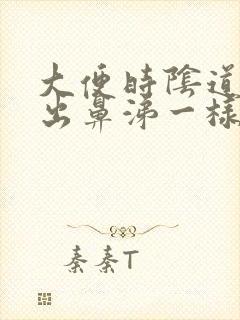 大便時陰道
出鼻涕一樣
秦秦T